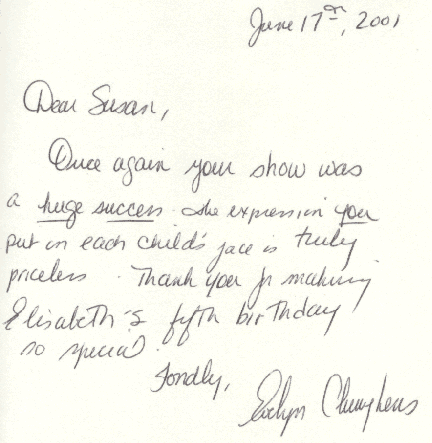 June 17th, 2001
Dear Susan,
Once again your show was
a huge success. The expression you
put on each child's face is truly
priceless. Thank you for making
Elisabeth's fifth birthday
so special.
Fondly,
Evelyn